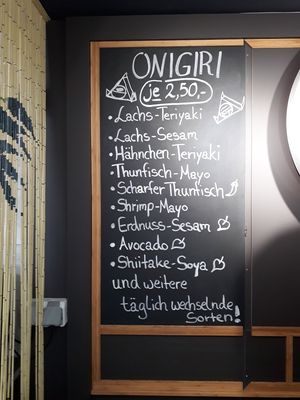 ONIGIRI
je 2,50,-
• Lachs-Teriyaki
• Lachs-Sesam
• Hähnchen-Teriyaki
• Thunfisch-Mayo
• Scharfer Thunfisch
• Shrimp-Mayo
• Erdnuss-Sesam
• Avocado
• Shiitake-Soya
und weitere
täglich wechselnde
Sorten!